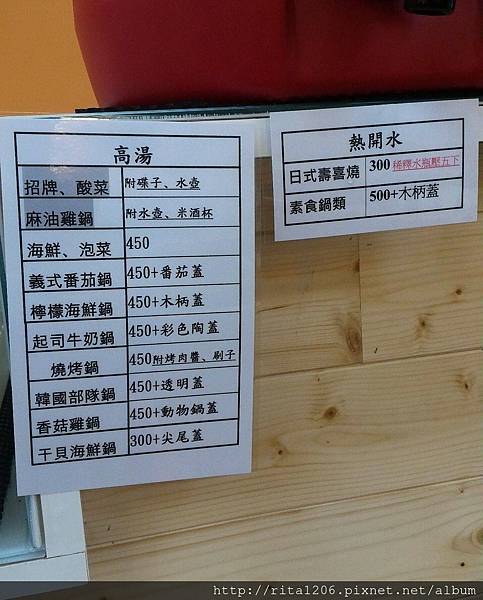 高湯
招牌、酸菜 附碟子、水壺
麻油雞鍋 附水壺、米酒杯
海鮮、泡菜 450
義式番茄鍋 450+番茄蓋
檸檬海鮮鍋 450+木柄蓋
起司牛奶鍋 450+彩色陶蓋
燒烤鍋 450附烤肉醬、刷子
韓國部隊鍋 450+透明蓋
香菇雞鍋 450+動物鍋蓋
干貝海鮮鍋 300+尖尾蓋
熱開水
日式壽喜燒 300 稀釋水瓶壓五下
素食鍋類 500+木柄蓋
http://rita1206.pixnet.net/album